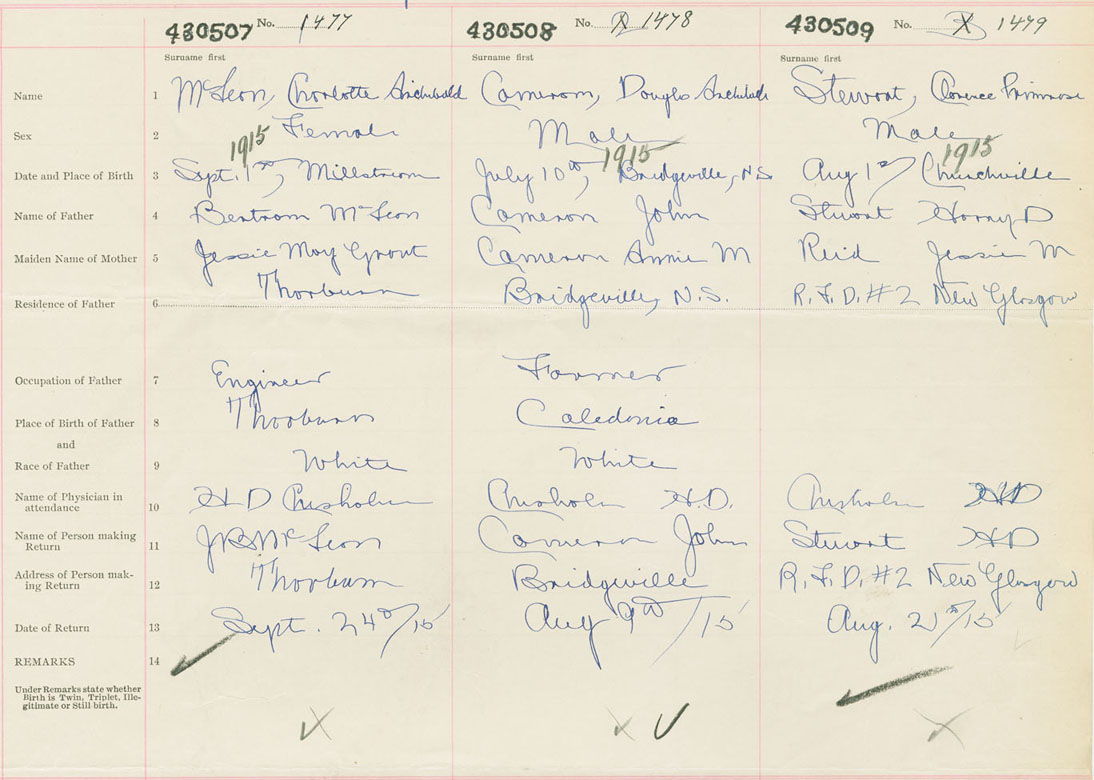 430507 No. 1477 430508 No. 1478 430509 No. 1479
Surname first Surname first Surname first
Name 1 McLeon, Charlotte Archibald Cameron, Douglas Archibald Stewart, Clarence Primrose
Sex 2 Female Male Male
1915 1915 1915
Date and Place of Birth 3 Sept. 1st, Millstream July 10th, Bridgeville, N.S. Aug 1st/ Churchville
Name of Father 4 Bertram McLeon Cameron John Stewart Harry D
Maiden Name of Mother 5 Jessie May Grant Cameron Annie M Reid Jessie M
Residence of Father 6 Thorburn Bridgeville, N.S. R.F.D. #2 New Glasgow
Occupation of Father 7 Engineer Farmer
Place of Birth of Father 8 Thorburn Caledonia
and
Race of Father 9 White White
Name of Physician in
attendance 10 H D Chisholm Chisholm H.D. Chisholm HD
Name of Person making
Return 11 McLeon Cameron John Stewart HD
Address of Person mak-
ing Return 12 Thorburn Bridgeville R.F.D. #2 New Glasgow
Date of Return 13 Sept. 24th/15 Aug 9th/15 Aug. 21st/15
REMARKS 14
Under Remarks state whether
Birth is Twin, Triplet, Ille-
gitimate or Still-birth.